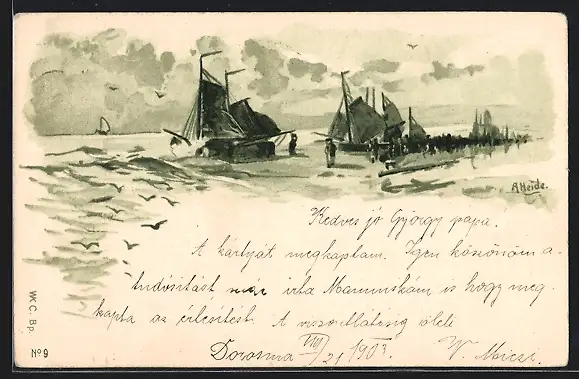 A Heide.
Kedves jó György papa!
A kártyát megkaptam. Igen köszönöm a
tudósítást már irta Mammiskám is hogy meg
kapta az értesítést. A viszontlátásig ölel
Dorosma VII/21 1903. W. Miczi.
W.K.C. Bp.
No 9